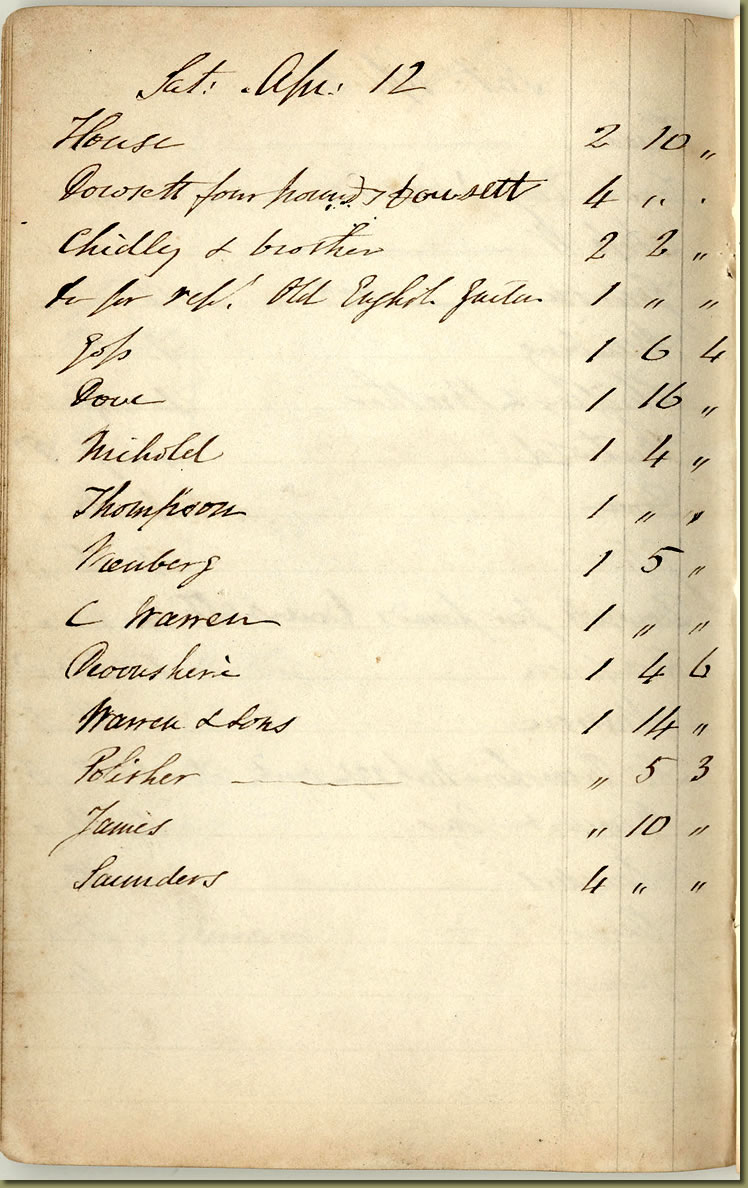 Sat: Apr: 12
House 2 10 "
Dowsett four pounds Dowsett 4 " "
Chidley & brother 2 2 "
Do for rep! Old English Guitar 1 " "
Goss 1 6 4
Dove 1 16 "
Nickold 1 4 "
Thompson 1 " "
1 5 "
C Warren 1 " "
Devonshire 1 4 6
Warren & Sons 1 14 "
Polisher " 5 3
James " 10 "
Saunders 4 " "